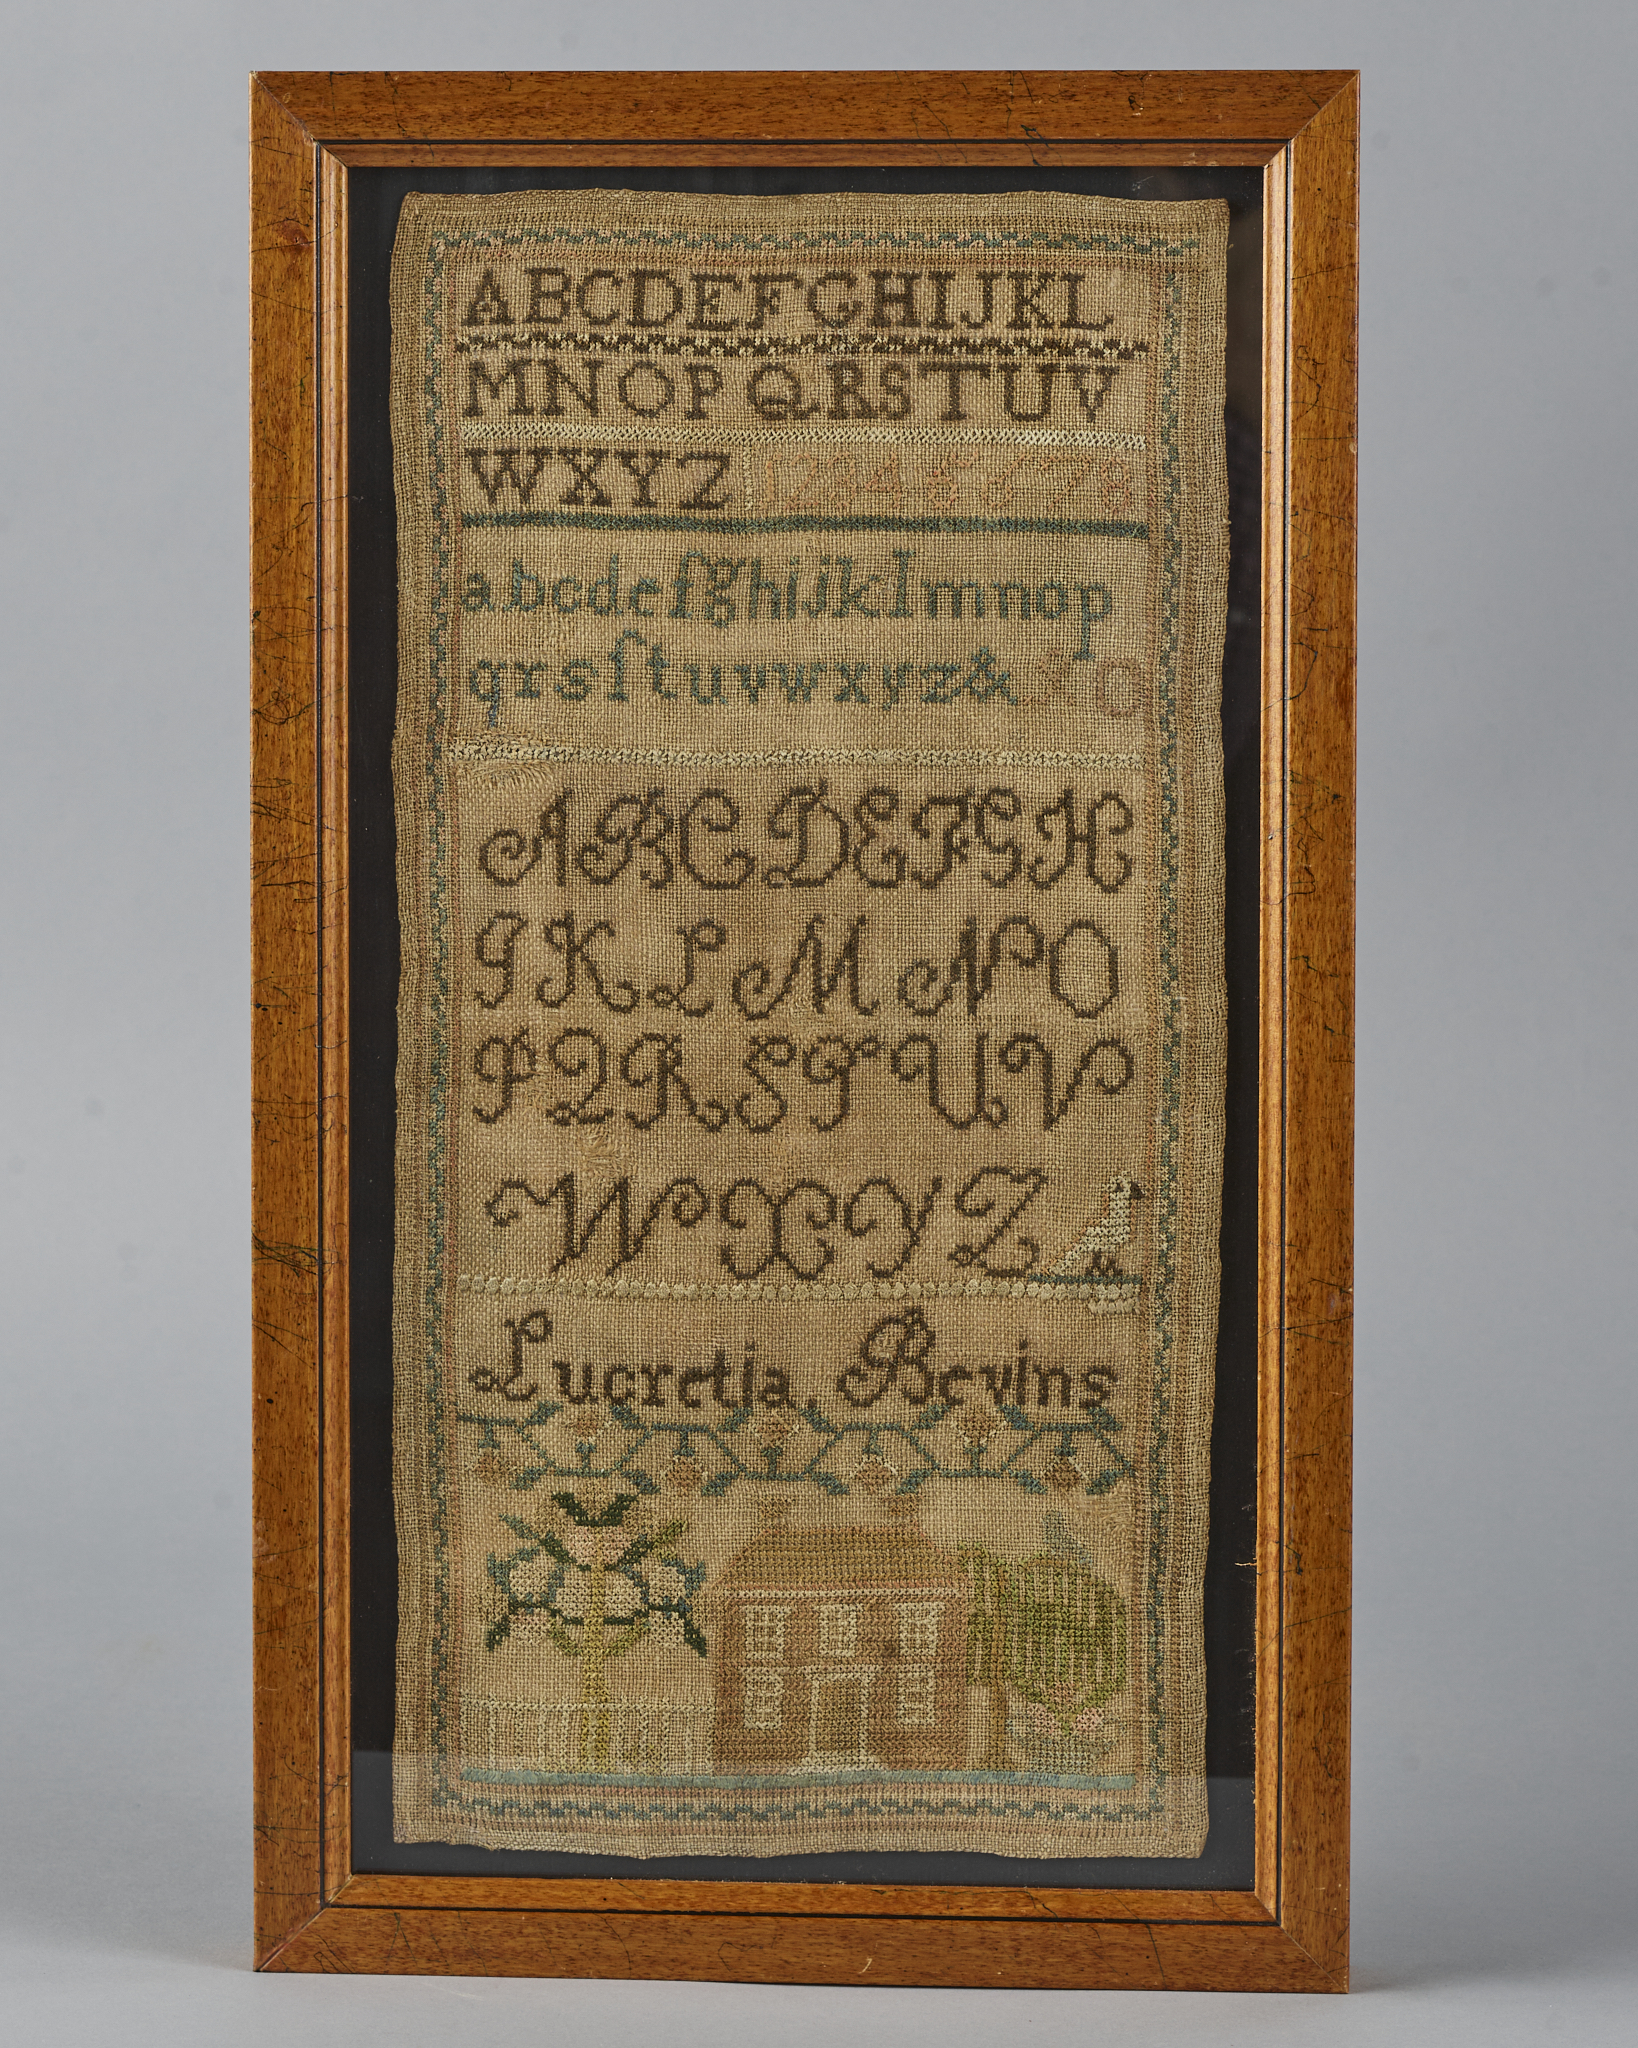 ABCDEFGHIJKL
MNOPQRSTUV
WXYZ 12345678
abcdefghijklmnop
qrsſtuvwxyz& 9 0
ABCDEFGH
IKLMNO
PQRSTUV
WXYZ
Lucretia, Bevins